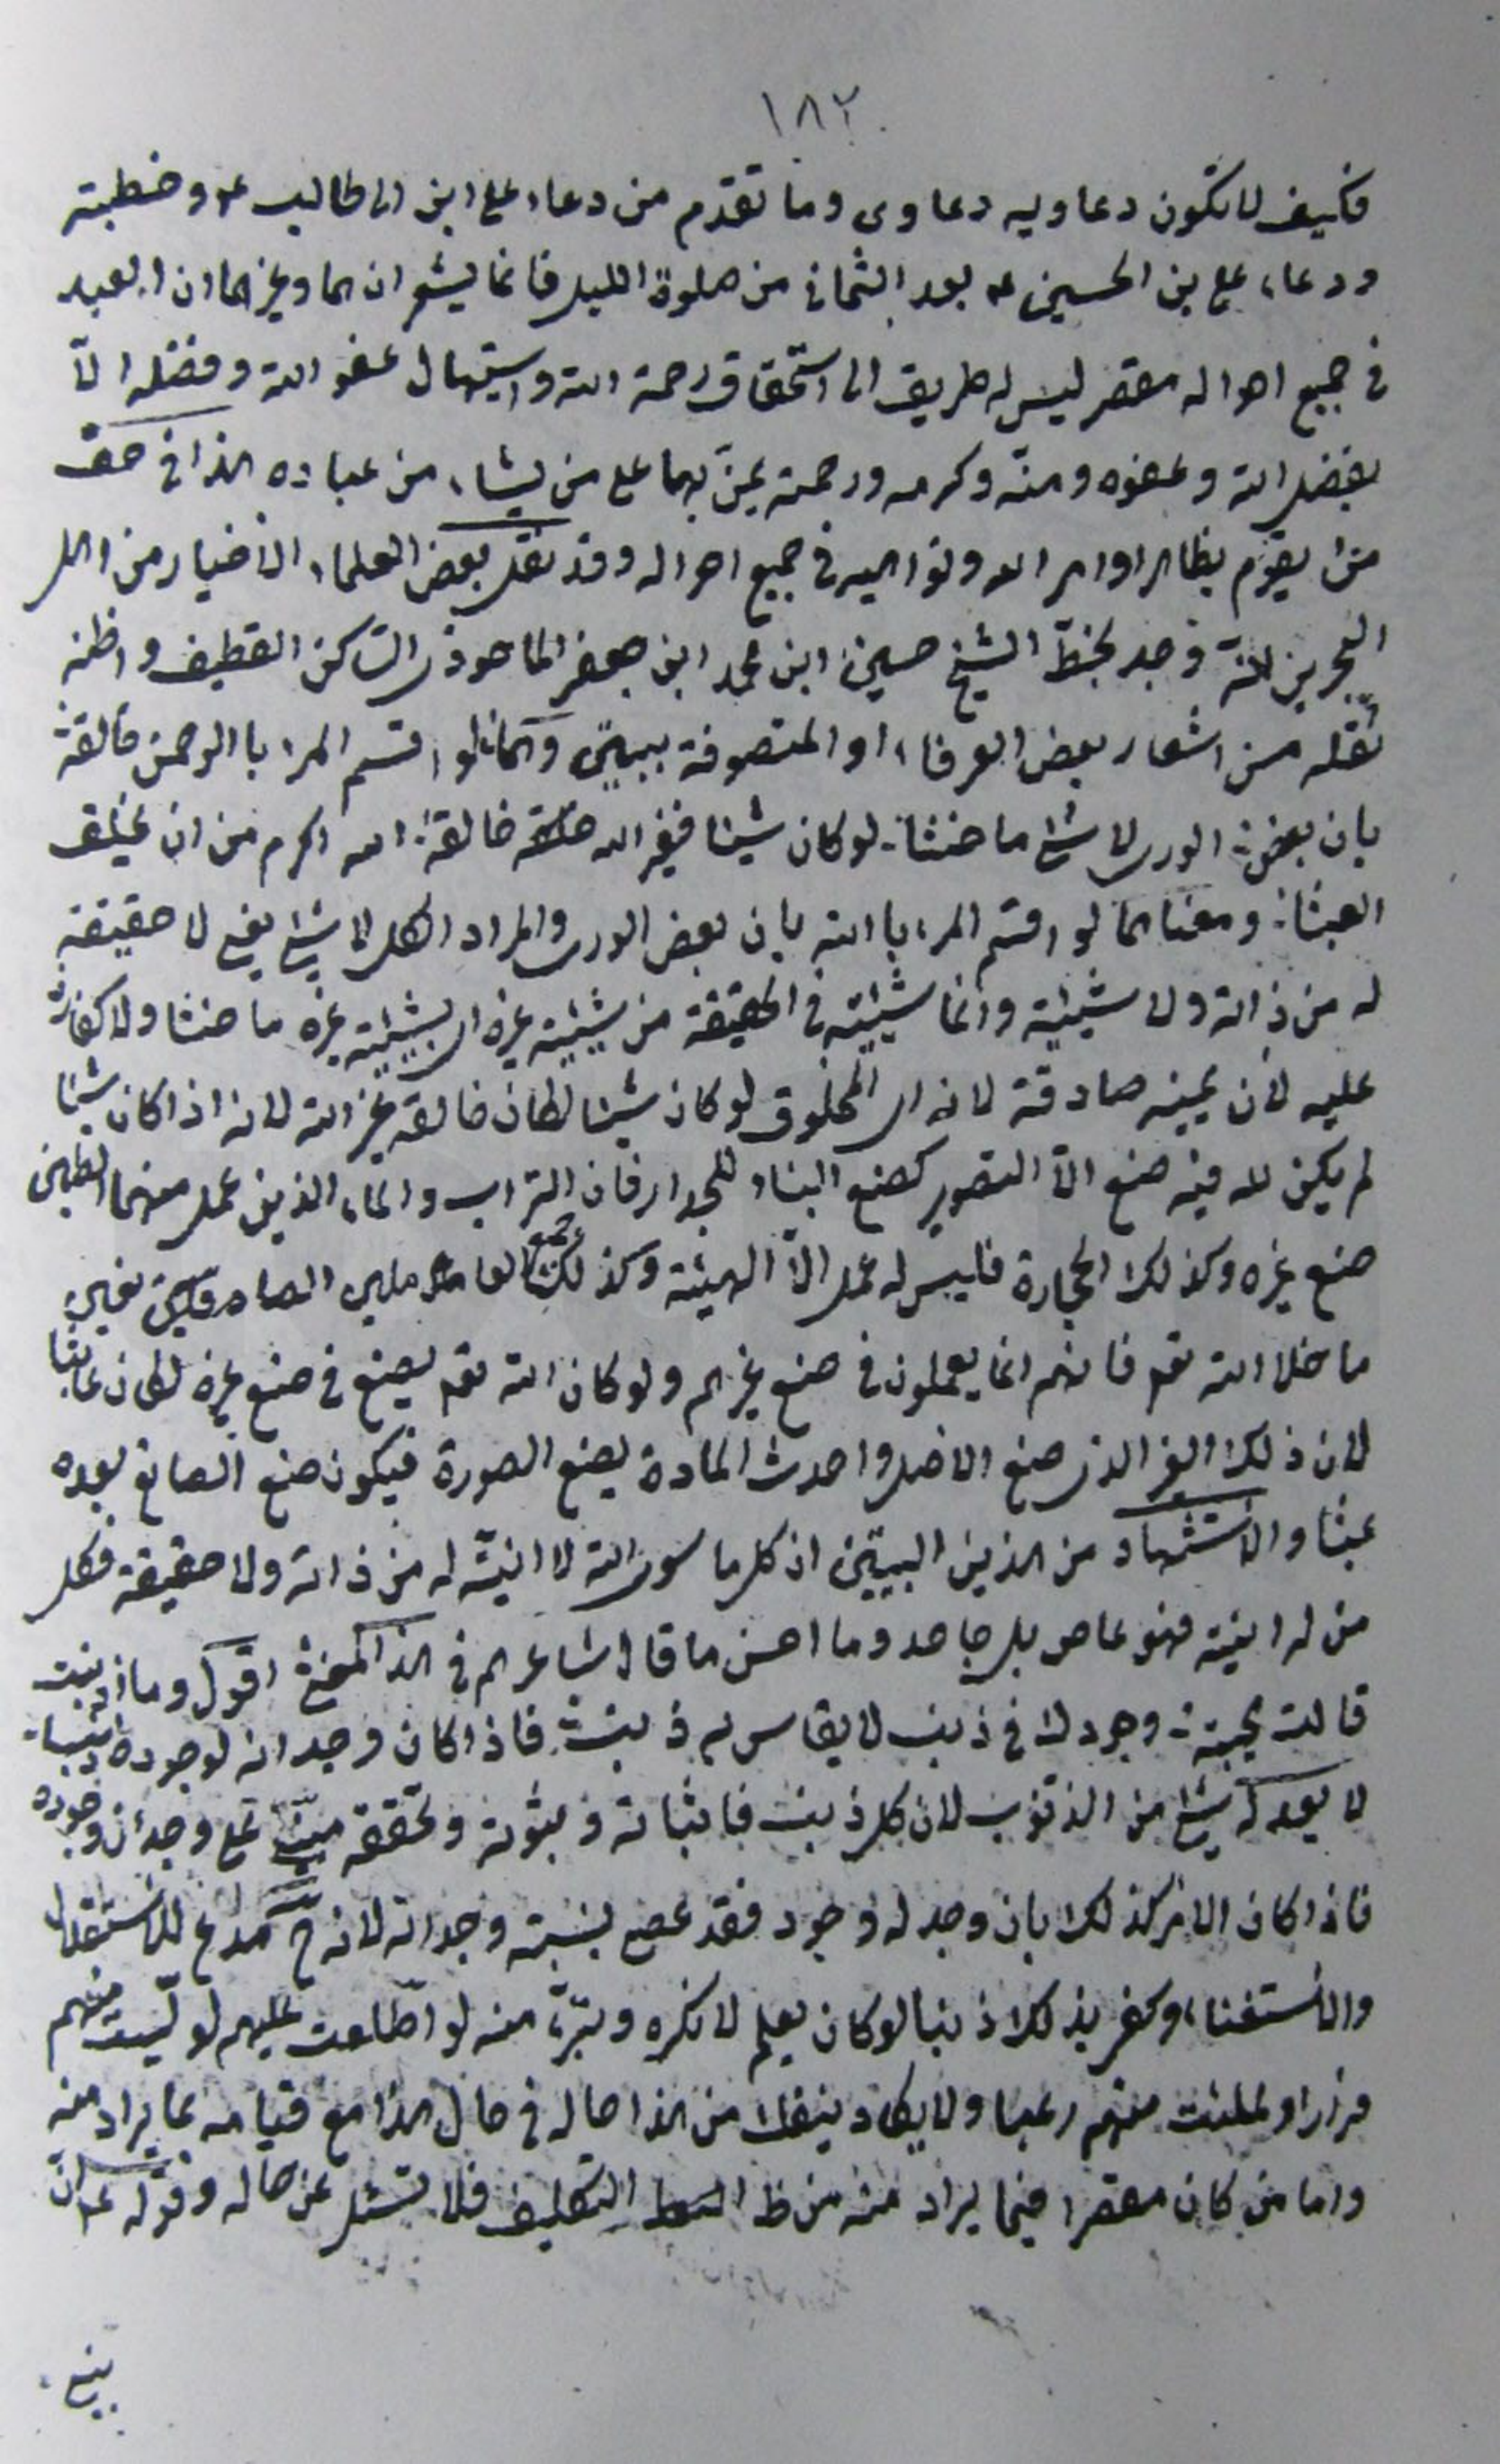 ١٨٢
فكيف لا تكون دعاويه دعاوى وما تقدم من دعاء علي ابن ابى طالب ع وخطبته
ودعاء علي بن الحسين ع بعد الثمان من صلوة الليل فانما يشعران هما وغيرهما ان العبد
في جميع احواله مقصر ليس له طريق الى استحقاق رحمة الله واستيهال عفو الله وفضله الّا
بفضل الله وعفوه ومنّه وكرمه ورحمته يمنّ بهما على من يشاء من عباده هذا في حق
من يقوم بظاهر اوامر الله ونواهيه في جميع احواله وقد نقل بعض العلماء الاخيار من اهل
البحرين انّه وجد بخطّ الشيخ حسين ابن محمد ابن جعفر الماحوذى الساكن القطيف واظنه
نقله من اشعار بعض العرفاء او المتصوفة ببيتين وهما لو اقسم المرء با الرحمن خالقه
بان بعض الورى لا شئ ما حنثا لو كان شيئا فغير الله خالقه الله اكرم من ان يخلق
العبثا ومعناهما لو اقسم المرء با الله بان بعض الورى والمراد الكل لا شئ يعني لا حقيقة
له من ذاته ولا شيئية وانما شيئيته في الحقيقة من شيئية غيره اى بشيئية غيره ما حنثا ولا كفارة
عليه لأن يمينه صادقة لانه اى المخلوق لو كان شيئا لكان خالقه غير الله لانه اذا كان شيئا
لم يكن لله فيه صنع الّا التصوير كصنع البناء للجدار فان التراب والماء الذين عمل منهما الطين
صنع غيره وكذلك الحجارة فليس له عمل الّا الهيئة وكذلك جميع العاملين الصادقين بغير
ما خلا الله تعم فانهم انما يعملون في صنع غيرهم ولو كان الله تعم يصنع في صنع غيره لكان عابثا
لان ذلك الغير الذى صنع الاصل واحدث المادة يصنع الصورة فيكون صنع الصانع بعده
عبثا والأستشهاد من هذين البيتين ان كل ما سوى الله لا انيّة له من ذاته ولا حقيقة فكل
من له انية فهو عاص بل جاحد وما احسن ما قال شاعرهم في هذا المعنى اقول وما اذنبت
قالت مجيبة وجودك ذنب لا يقاس به ذنب فاذا كان وجدانه لوجوده ذنبا
لا يعدله شئ من الذنوب لان كل ذنب فاثباته وثبوته وتحققه مبنيّ على وجدان وجوده
فاذا كان الامر كذلك بان وجد له وجود فقد عصى بنسبة وجدانه لانه ح مدّع للاستقلال
والاستغناء وكفى بذلك ذنبا لو كان يعلم لانكره وتبرّء منه لو اطّلعت عليهم لولّيت منهم
فرارا ولملئت منهم رعبا ولا يكاد ينفك من هذا حاله في حال هذا مع قيامه بما يراد منه
واما من كان مقصرا فيما يراد منه من ظ التكليف فلا تسئل عن حاله وقوله ع ان